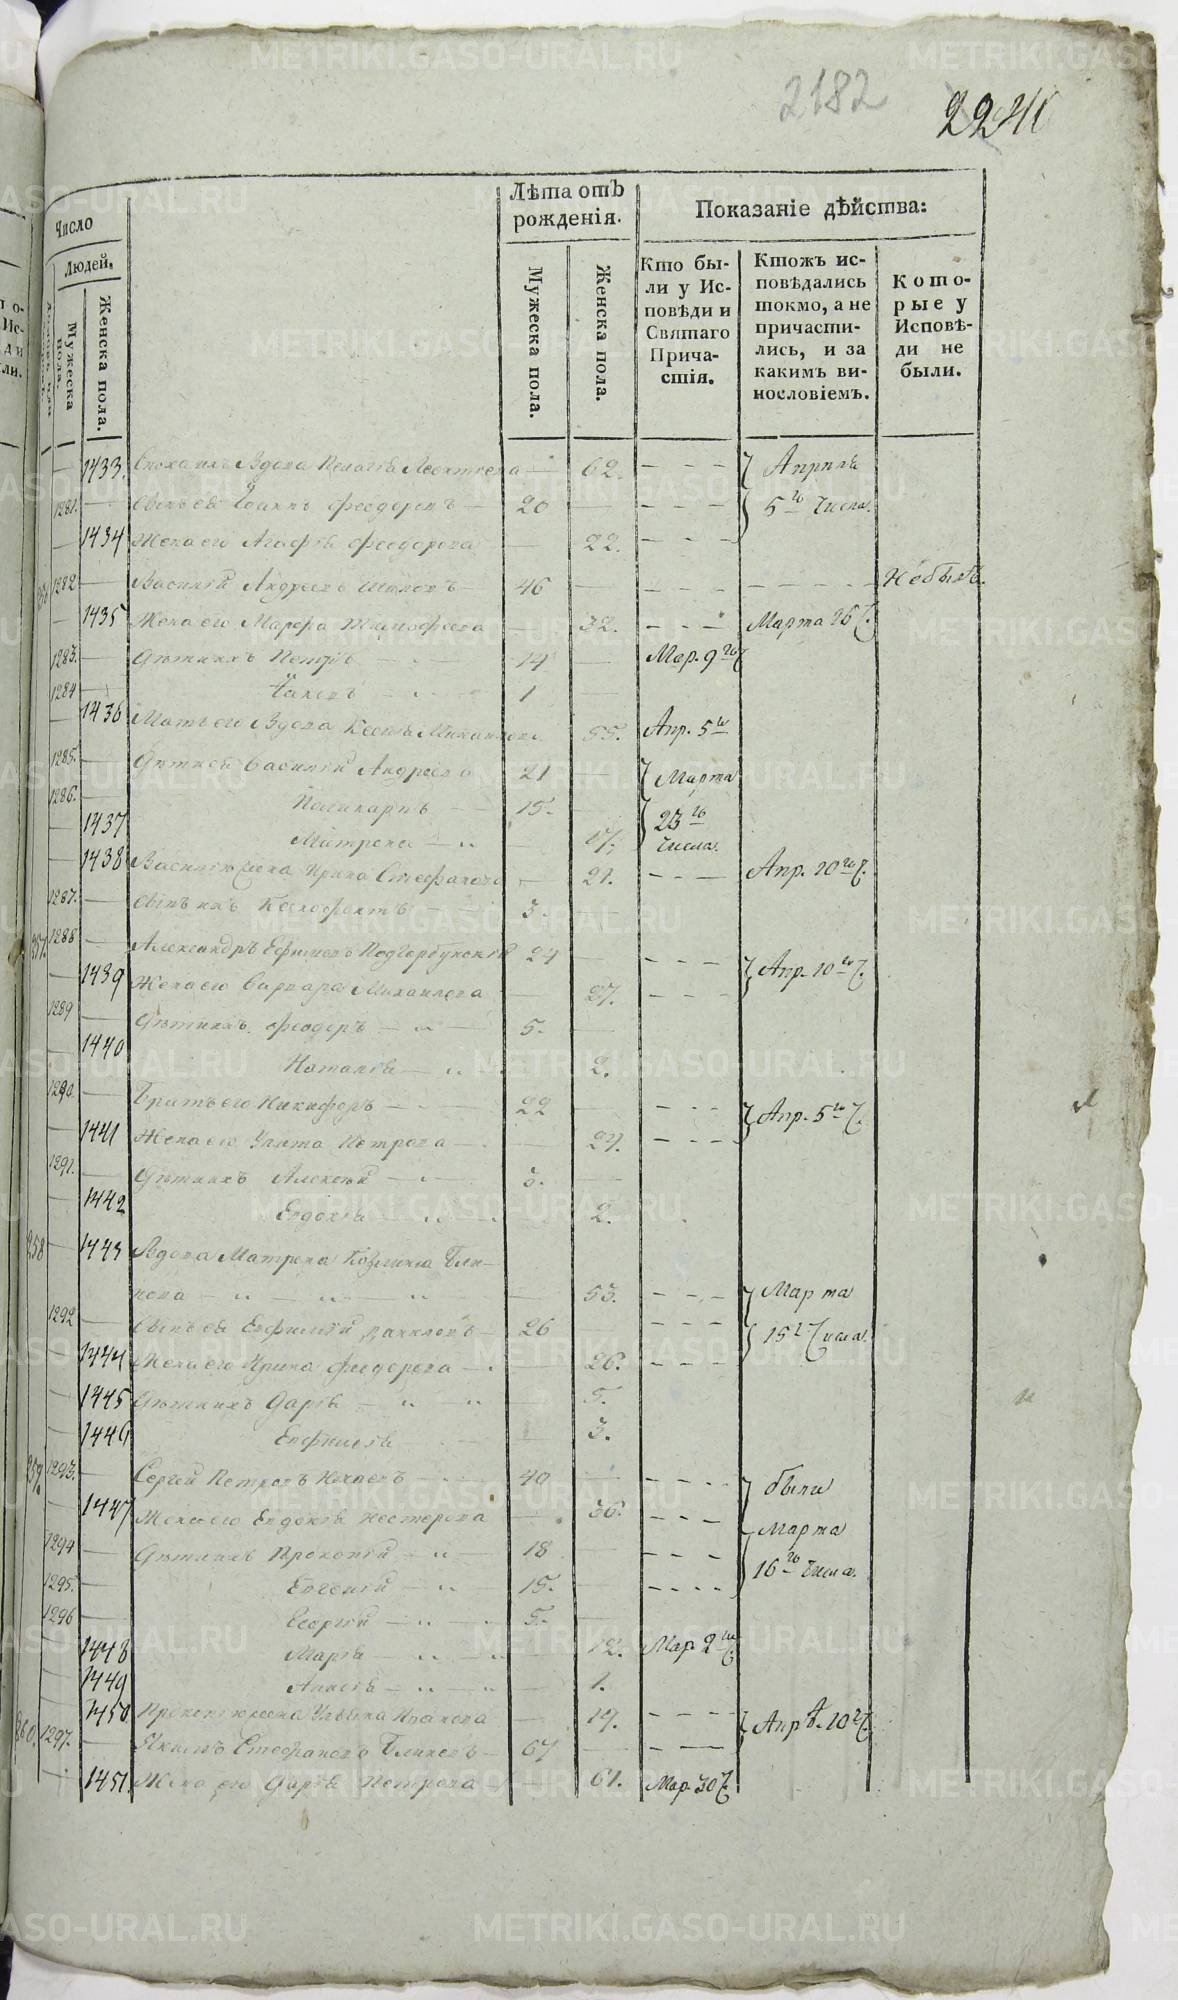 2182
2240
Число
Людей.
Мужеска пола.
Женска пола.
Лѣта отъ рожденія.
Мужеска пола.
Женска пола.
Показаніе дѣйства:
Кто были у Исповѣди и Святаго Причастія.
Ктожъ исповѣдались токмо, а не причастились, и за какимъ винословіемъ.
Которые у Исповѣди не были.
1433. Вдова Пелагія Леонтьева — 62. — — — Апрѣля
1281. — Сынъ ея Іоаннъ Феодоровъ — 20 — — — — 5го Числа.
— 1434 Жена его Агафія Феодорова — 22. — — —
1282 — Василій Андреевъ — 46 — — — — Небылъ.
— 1435 Жена его Марфа Тимофеева — 32. — — — Марта 26 Ч.
1283. — Дѣти ихъ Петръ — 14 — Мар. 9го Ч
1284 — Іаковъ — 1 —
— 1436 Мать его Вдова Ксенія Михаилова 55. Апр. 5го
1285. — Дѣти ея Василій Андреевъ 21 — Марта
1286. — Поликарпъ — 15. — 23го
— 1437 Матрона — „ — 17. Числа.
— 1438 Василія жена Ирина Стефанова — 21. — — — Апр. 10го Ч.
1287. — Сынъ ихъ Ксенофонтъ — 3.
257. 1288 — Александръ Ефимовъ Подгорбунскій 24 — — — —
— 1439 Жена его Варвара Михаилова — 27. — — — Апр. 10го Ч.
1289 — Дѣти ихъ Феодоръ — „ — 5. —
— 1440 Наталія — „ 2.
1290. — Братъ его Никифоръ — 22 — — — —
— 1441 Жена его Улита Петрова — 27. — — — Апр. 5го Ч.
1291. — Дѣти ихъ Алексѣй — „ — 3. —
— 1442 Евдокія — „ „ 2.
258 — 1443 Вдова Матрона Козмина Бли-
нова — „ — „ — „ — 53. — — — Марта
1292 — Сынъ ея Евфимій Даниловъ — 26 — — — 15го Числа.
— 1444 Жена его Ирина Феодорова — 26. — — —
— 1445 Дѣти ихъ Дарія — „ — „ — 5.
— 1446 Евфимія — 3.
259. 1293. — Сергей Петровъ — 40 — — — — были
— 1447 Жена его Евдокія Нестерова — 36. — — — Марта
1294 — Дѣти ихъ Прокопій — „ — 18 — — — — 16го Числа.
1295. — Евгеній — „ 15. — — — —
1296 — Георгій — „ — „ 5. —
— 1448 Марія — „ — „ — 12. Мар. 2го Ч.
— 1449 Анисія — „ — „ — 1.
— 1450 Прокопія жена Ульяна Иванова — 19. — — — Апр. 10го Ч.
260. 1297. — Якимъ Стефановъ Блиновъ — 67 — — — —
— 1451. Жена его Дарія Петрова — 61. Мар. 30 Ч.
METRIKI.GASO-URAL.RU